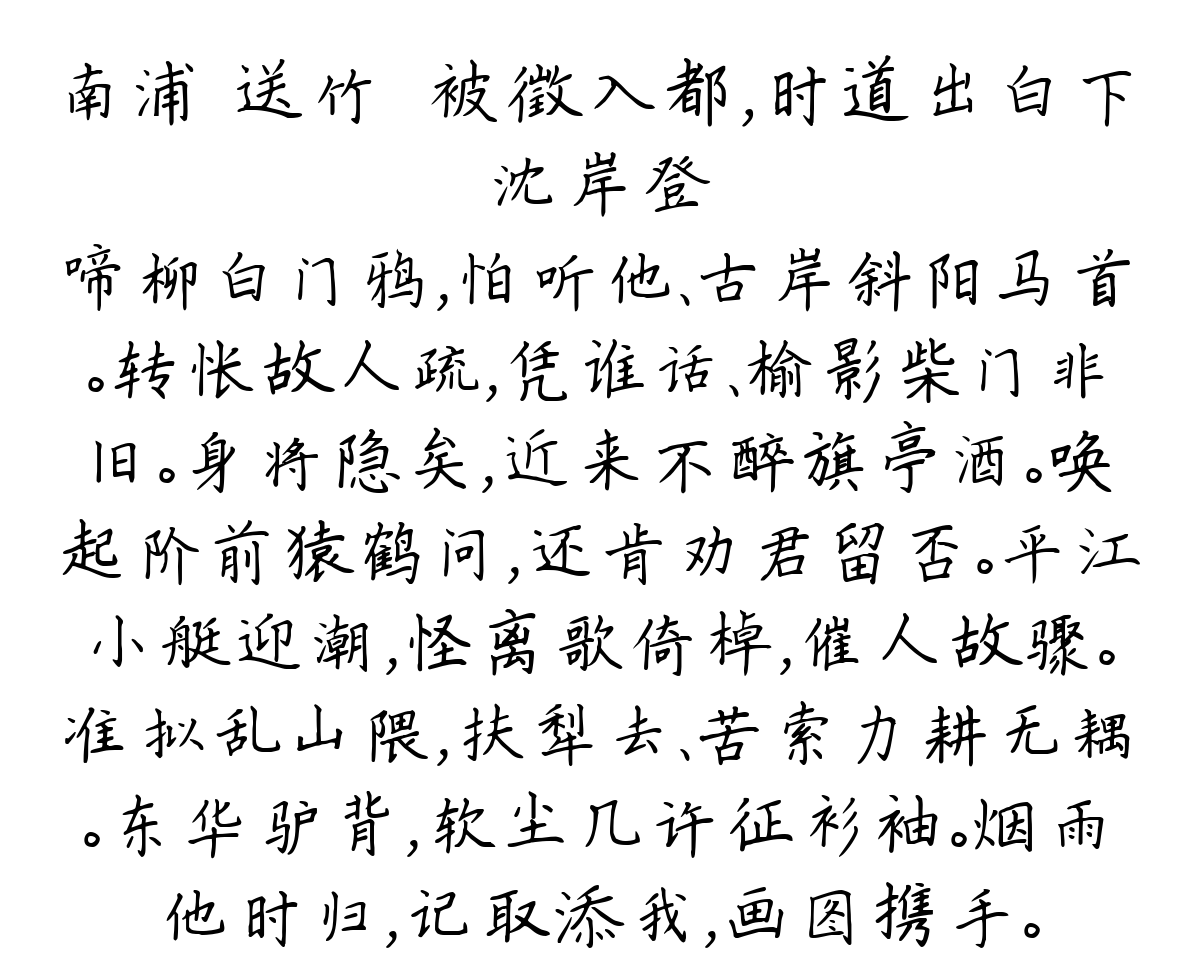 南浦 送竹 被徵入都,时道出白下
沈岸登
啼柳白门鸦,怕听他、古岸斜阳马首
。转怅故人疏,凭谁话、榆影柴门非
旧。身将隐矣,近来不醉旗亭酒。唤
起阶前猿鹤问,还肯劝君留否。平江
小艇迎潮,怪离歌倚棹,催人故骤。
准拟乱山隈,扶犁去、苦索力耕无耦
。东华驴背,软尘几许征衫袖。烟雨
他时归,记取添我,画图携手。